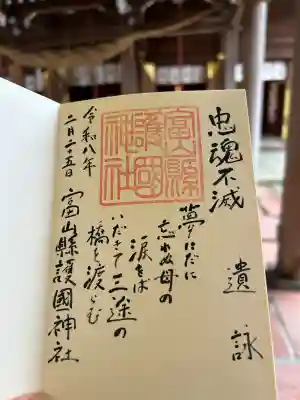 忠魂不滅
遺詠
夢にだに
忘れぬ母の
涙をば
いだきて三途の
橋を渡らむ
富山縣護國神社
令和八年
二月二十五日
富縣
護國
神社